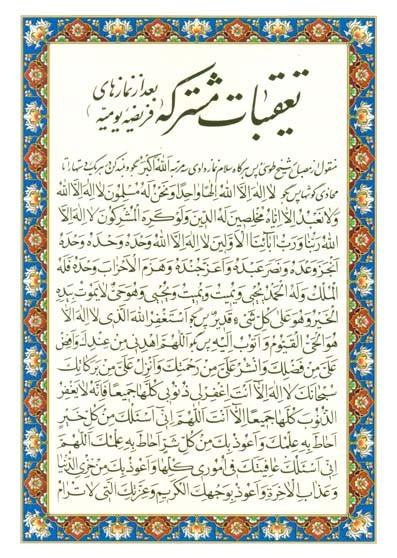 تعقیبات مشترکه
بعد از نمازهای
(فریضه یومیّه)
منقول از مصباح شیخ طوسی پس هرگاه سلام نماز دادی سه مرتبه الله اکبر بگو و بلند کن در هر یک دستها را تا
محاذی گوشها پس بگو لا اله الا الله الها واحدا و نحن له مسلمون لا اله الا الله
ولا نعبد الا ایاه مخلصین له الدین ولو کره المشرکون لا اله الا
الله ربنا ورب ابائنا الاولین لا اله الا الله وحده وحده وحده
انجز وعده ونصر عبده واعز جنده وهزم الاحزاب وحده فله
الملک وله الحمد یحیی ویمیت ویمیت ویحیی وهو حی لا یموت بیده
الخیر وهو علی کل شیء قدیر پس بگو استغفر الله الذی لا اله الا
هو الحی القیوم واتوب الیه پس بگو اللهم اهدنی من عندک وافض
علی من فضلک وانشر علی من رحمتک وانزل علی من برکاتک
سبحانک لا اله الا انت اغفر لی ذنوبی کلها جمیعا فانه لا یغفر
الذنوب کلها جمیعا الا انت اللهم انی اسئلک من کل خیر
احاط به علمک واعوذ بک من کل شر احاط به علمک اللهم
انی اسئلک عافیتک فی اموری کلها واعوذ بک من خزی الدنیا
وعذاب الاخرة واعوذ بوجهک الکریم وعزتک التی لا ترام